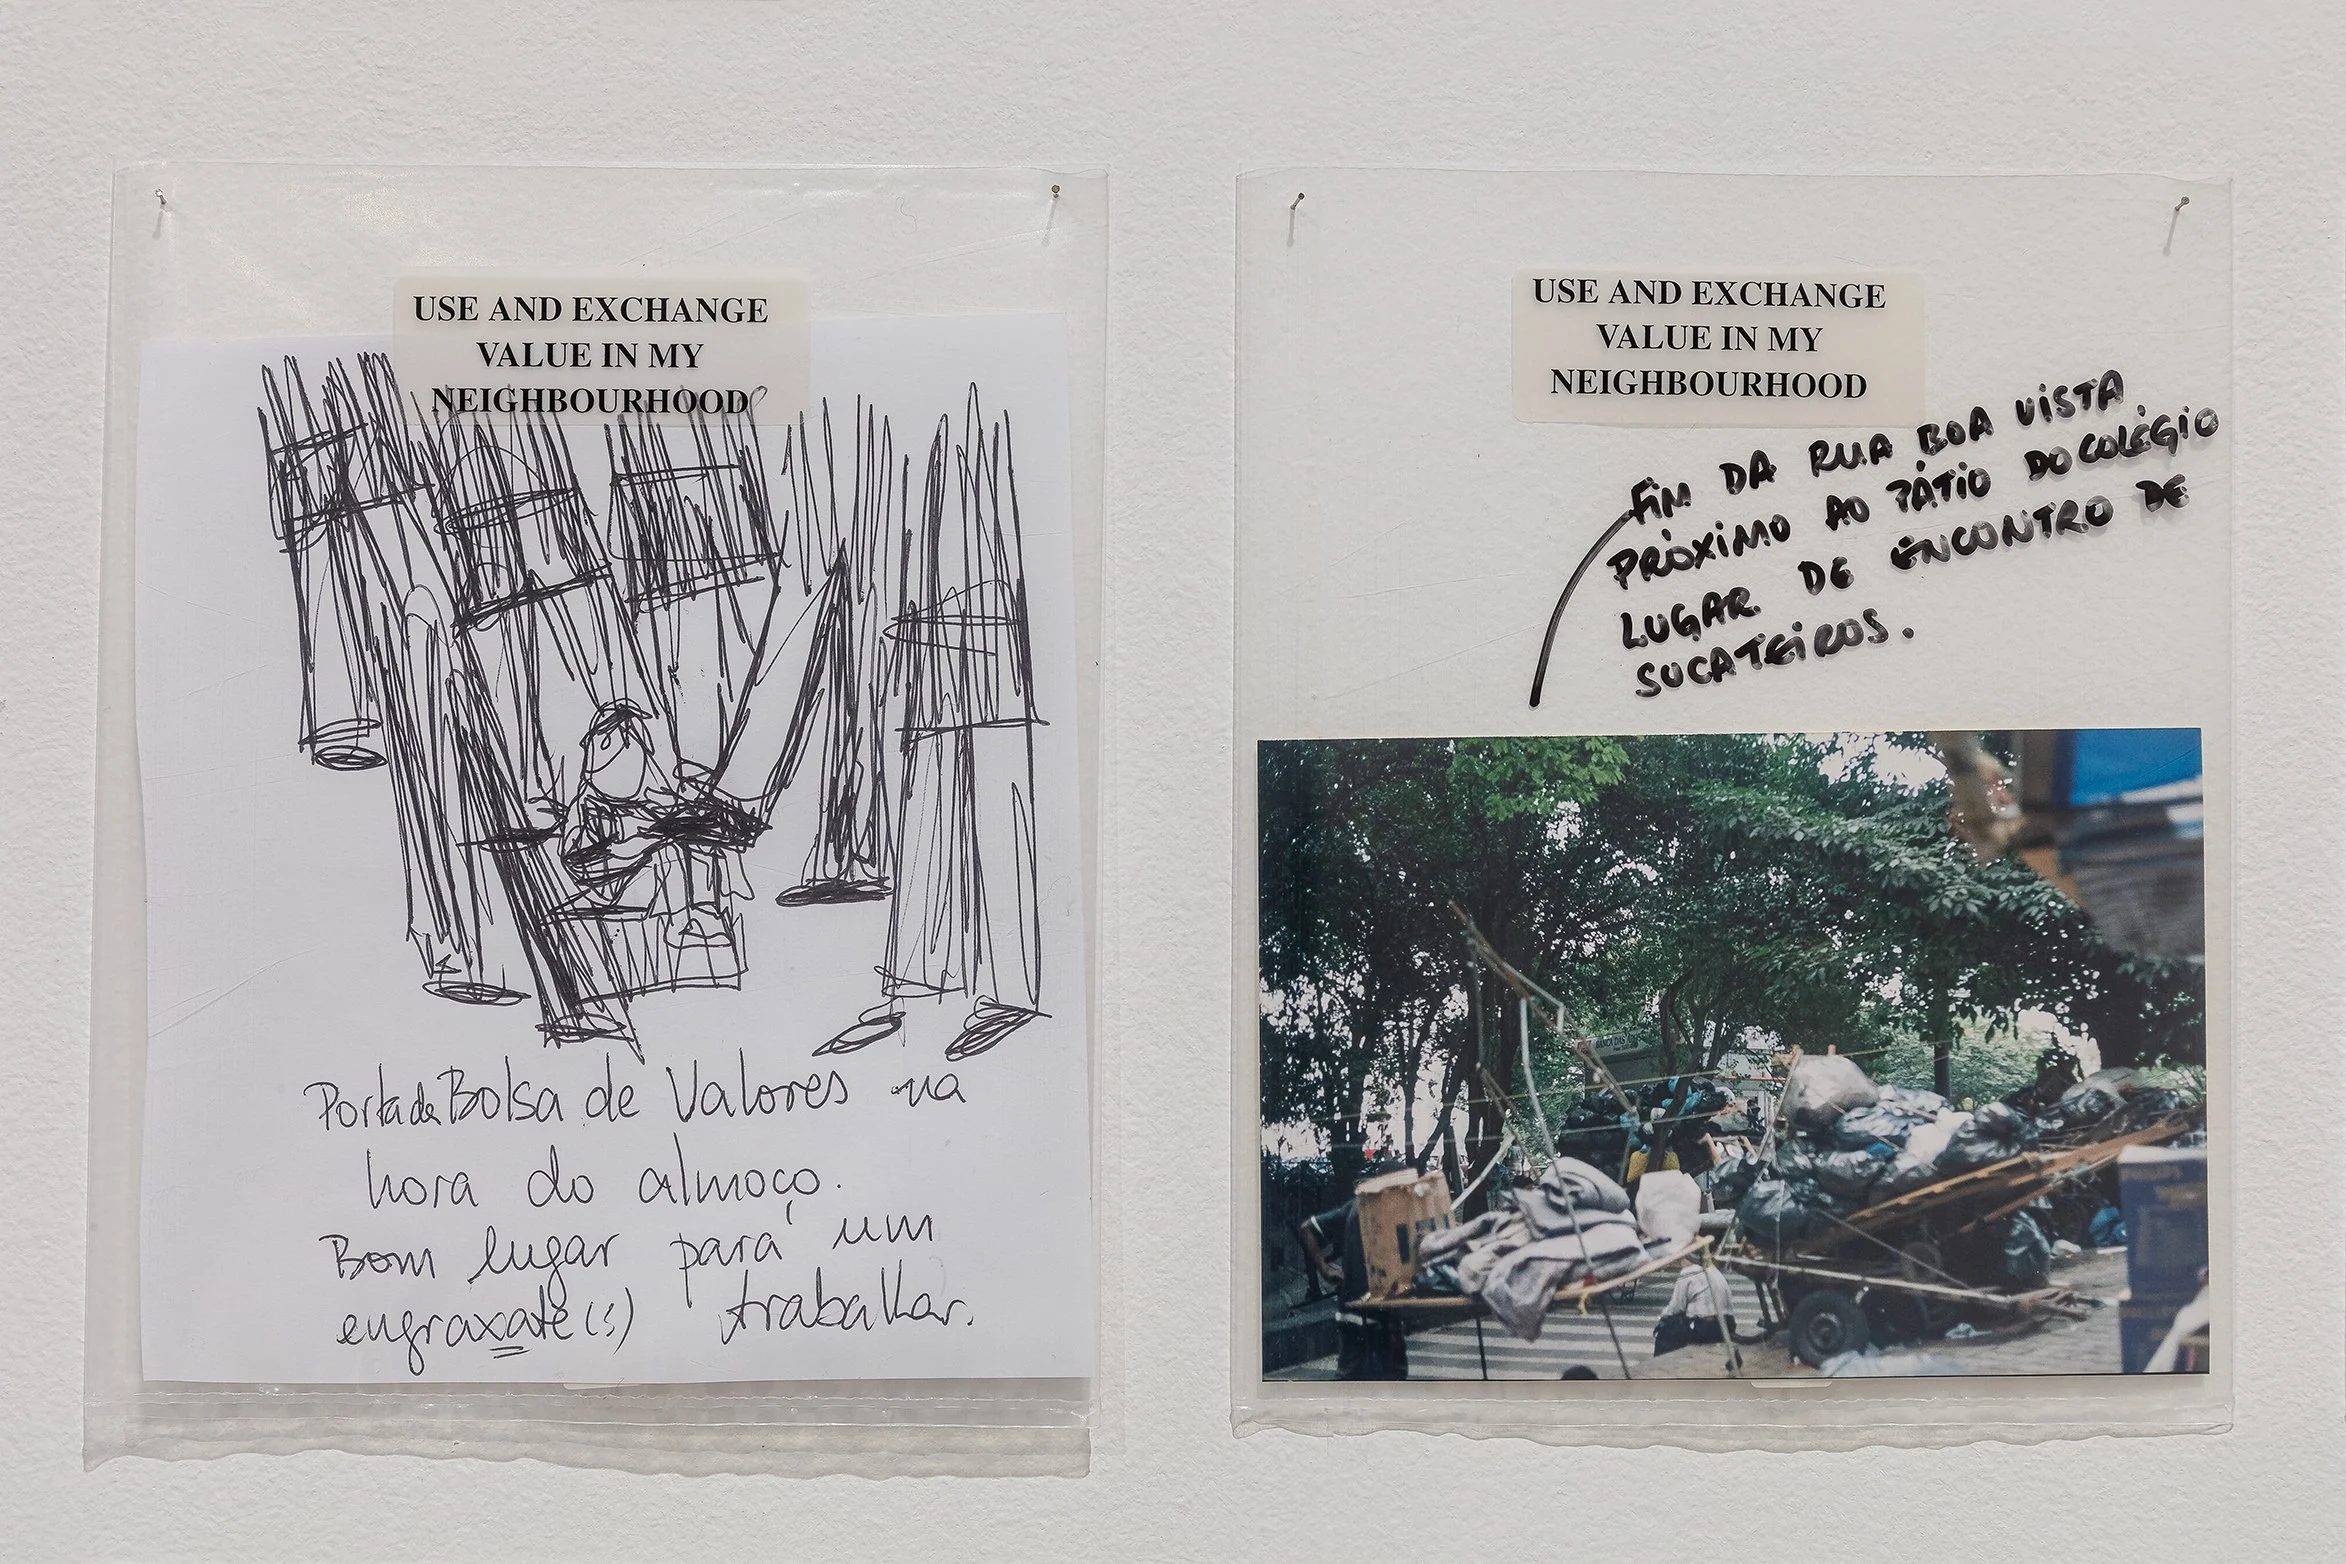 USE AND EXCHANGE
VALUE IN MY
NEIGHBOURHOOD
Porta da Bolsa de Valores na
hora do almoço.
Bom lugar para um
engraxate(s) trabalhar.
USE AND EXCHANGE
VALUE IN MY
NEIGHBOURHOOD
FIM DA RUA BOA VISTA
PRÓXIMO AO PÁTIO DO COLÉGIO
LUGAR DE ENCONTRO DE
SUCATEIROS.
BANCA DAS